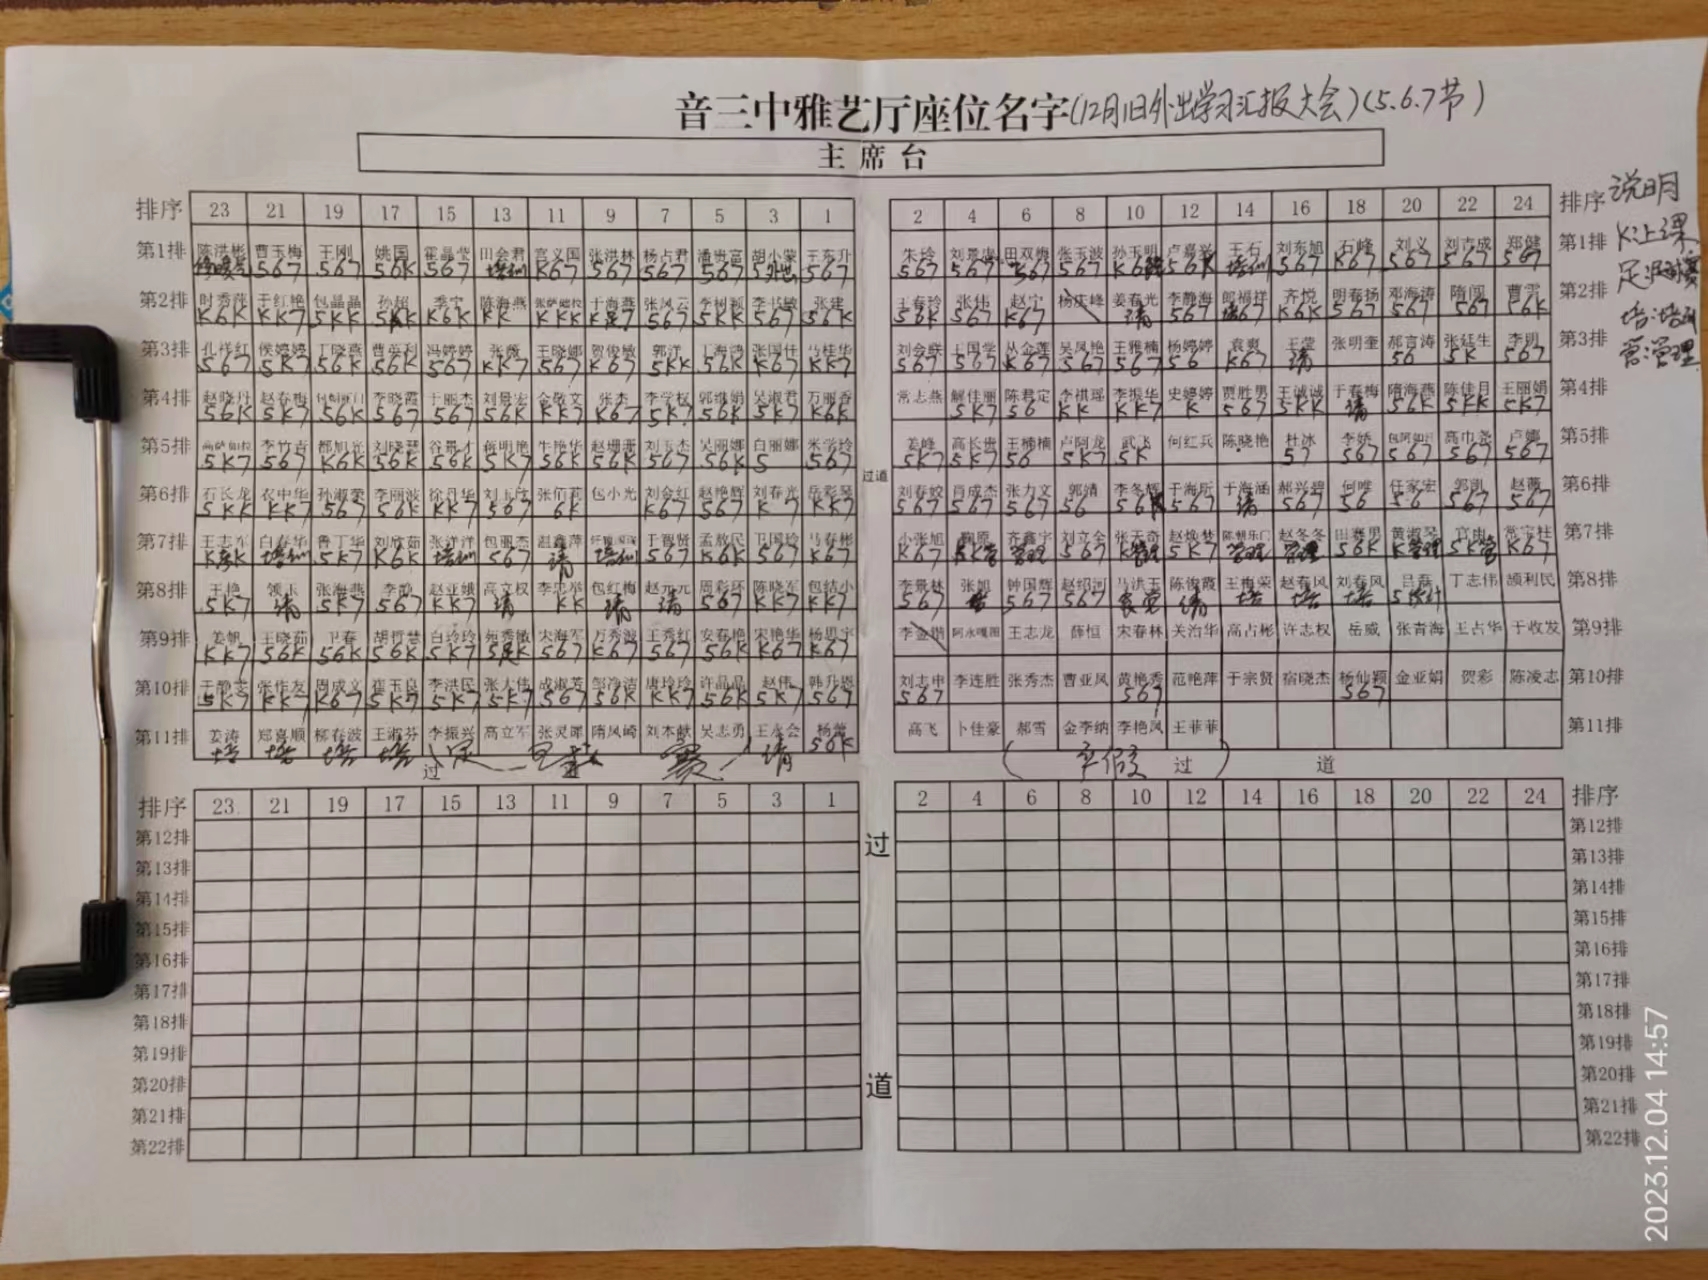 音三中雅艺厅座位名字(12月1日外出学习汇报大会)(5.6.7节)
主席台
排序 23 21 19 17 15 13 11 9 7 5 3 1 2 4 6 8 10 12 14 16 18 20 22 24 排序 说明
第1排 陈洪彬 曹玉梅 王刚 姚国 霍晶莹 田会君 宫义国 张洪林 杨占君 潘贵富 胡小蒙 王东升 朱玲 刘景 田双梅 张玉波 孙玉明 卢嘉兴 王石 刘东旭 石峰 刘义 刘吉成 郑健 第1排 K:上课
567 567 56K 567 培训 K67 567 567 567 567 567 567 567 567 56K 培训 567 K67 567 567 567 足:足球赛
第2排 时秀萍 于红艳 包晶晶 孙超 季宁 陈海燕 于海燕 张凤云 李树颖 李书敏 张建 王春玲 张伟 赵宁 杨庆峰 姜春光 李静海 郎福祥 齐悦 明春扬 邓海涛 隋阁 曹雪 第2排
K6K KK7 5KK K6K KK KKK K足7 567 5KK 567 56K 56K 567 K67 请 567 K6K 567 567 567 56K 培:培训
第3排 孔祥红 侯婷婷 丁晓燕 曹英利 冯婷婷 张薇 王晓娜 贺俊敏 郭洋 丁海鸿 张国仕 马桂华 刘会联 王国学 丛金莲 吴凤艳 王雅楠 杨婷婷 袁爽 王莹 张明奎 郝言涛 张廷生 李明 第3排
567 5K7 56K 56K 567 KK7 567 K67 5KK 56K K67 K67 567 567 567 567 567 56 K67 请 56 5K 567 管:管理
第4排 赵晓丹 赵春梅 李晓霞 于丽杰 刘景宏 金敬文 张杰 李学权 郭维娟 吴淑君 万丽香 常志燕 解佳丽 陈君定 李祺瑶 李振华 史婷婷 贾胜男 王诚诚 于春梅 隋海燕 陈佳月 王丽娟 第4排
56K 5K7 56K 567 567 56K KK7 K67 5K7 56K 5K7 K6K 5K7 56 KK KK7 K 567 5KK 请 56K 5KK 5K7
第5排 李竹青 都旭光 刘晓慧 谷景才 蒋明艳 牛艳华 赵珊珊 刘玉杰 吴丽娜 白丽娜 米学玲 姜峰 高长贵 王楠楠 卢阿龙 武飞 何红兵 陈晓艳 杜冰 李娇 包阿如汗 高巾尧 卢娜 第5排
5K7 567 K6K 56K 56K 5K7 56K 56K 567 56K 5 567 5K7 5K7 56 5K7 5K 57 567 567 567 567
过道
第6排 石长龙 衣中华 孙淑荣 李丽波 徐丹华 刘玉欣 张佰莉 包小光 刘会红 赵艳辉 刘春光 岳彩琴 刘春蛟 肖成杰 张力文 郭靖 李冬梅 于海斯 于海涵 郝兴碧 何唯 任家宏 郭凯 赵薇 第6排
5KK KK7 567 56K KK7 567 6K K67 567 K 7 KK7 567 567 567 56 567 请 567 56 56 567 567
第7排 王志军 白春华 鲁丁华 刘欣茹 张洋洋 包丽杰 温鑫萍 于智贤 孟敖民 卫国玲 马春彬 小张旭 鞠原 齐鑫宇 刘立全 张天奇 赵焕梦 赵冬冬 田赛男 黄淑琴 宫雨 常宝柱 第7排
培训 5K7 K6K 培训 567 请 培训 K67 K6K 567 K67 K67 管理 567 K管理 5K7 管理 管理 56K K管理 5K管 K67
第8排 王艳 领玉 张海燕 李静 赵亚娥 高文权 李忠举 包红梅 赵元元 周彩环 陈晓军 包结小 李景林 张旭 钟国辉 赵绍河 马洪玉 陈俊霞 王梅荣 赵春风 刘春风 吕磊 丁志伟 颂利民 第8排
5K7 请 5K7 567 KK7 请 KK 请 请 567 KK7 KK7 567 567 567 请 培 培 培
第9排 姜帆 王晓茹 卫春 胡哲慧 白玲玲 苑秀敏 宋海军 万秀波 王秀红 安春艳 宋艳华 杨思宇 李金锴 阿永嘎图 王志龙 薛恒 宋春林 关治华 高占彬 许志权 岳威 张青海 王占华 于收发 第9排
KK7 56K 56K 56K 5K7 5足K 567 K67 567 56K K67 K67
第10排 于静芝 张作友 周成文 崔玉良 李洪民 张大伟 成淑英 邹净洁 唐玲玲 许晶晶 赵伟 韩升恩 刘志申 李连胜 张秀杰 曹亚凤 黄艳秀 范艳萍 于宗贤 宿晓杰 杨仙颖 金亚娟 贺彩 陈凌志 第10排
5K7 KK7 K67 5K7 5K7 5K7 567 56K KK7 56K 5K7 567 567 567 567
第11排 姜涛 郑喜顺 柳春波 王淑芬 李振兴 高立军 张灵犀 隋凤崎 刘本猷 吴志勇 王永会 杨蕾 高飞 卜佳豪 郝雪 金李纳 李艳凤 王菲菲 第11排
培 培 培 培 (足 球 赛) 请 56K
过 (产假) 过 道
排序 23 21 19 17 15 13 11 9 7 5 3 1 2 4 6 8 10 12 14 16 18 20 22 24 排序
第12排 过 第12排
第13排 第13排
第14排 第14排
第15排 第15排
第16排 第16排
第17排 第17排
第18排 第18排
第19排 第19排
第20排 道 第20排
第21排 第21排
第22排 第22排
2023.12.04 14:57